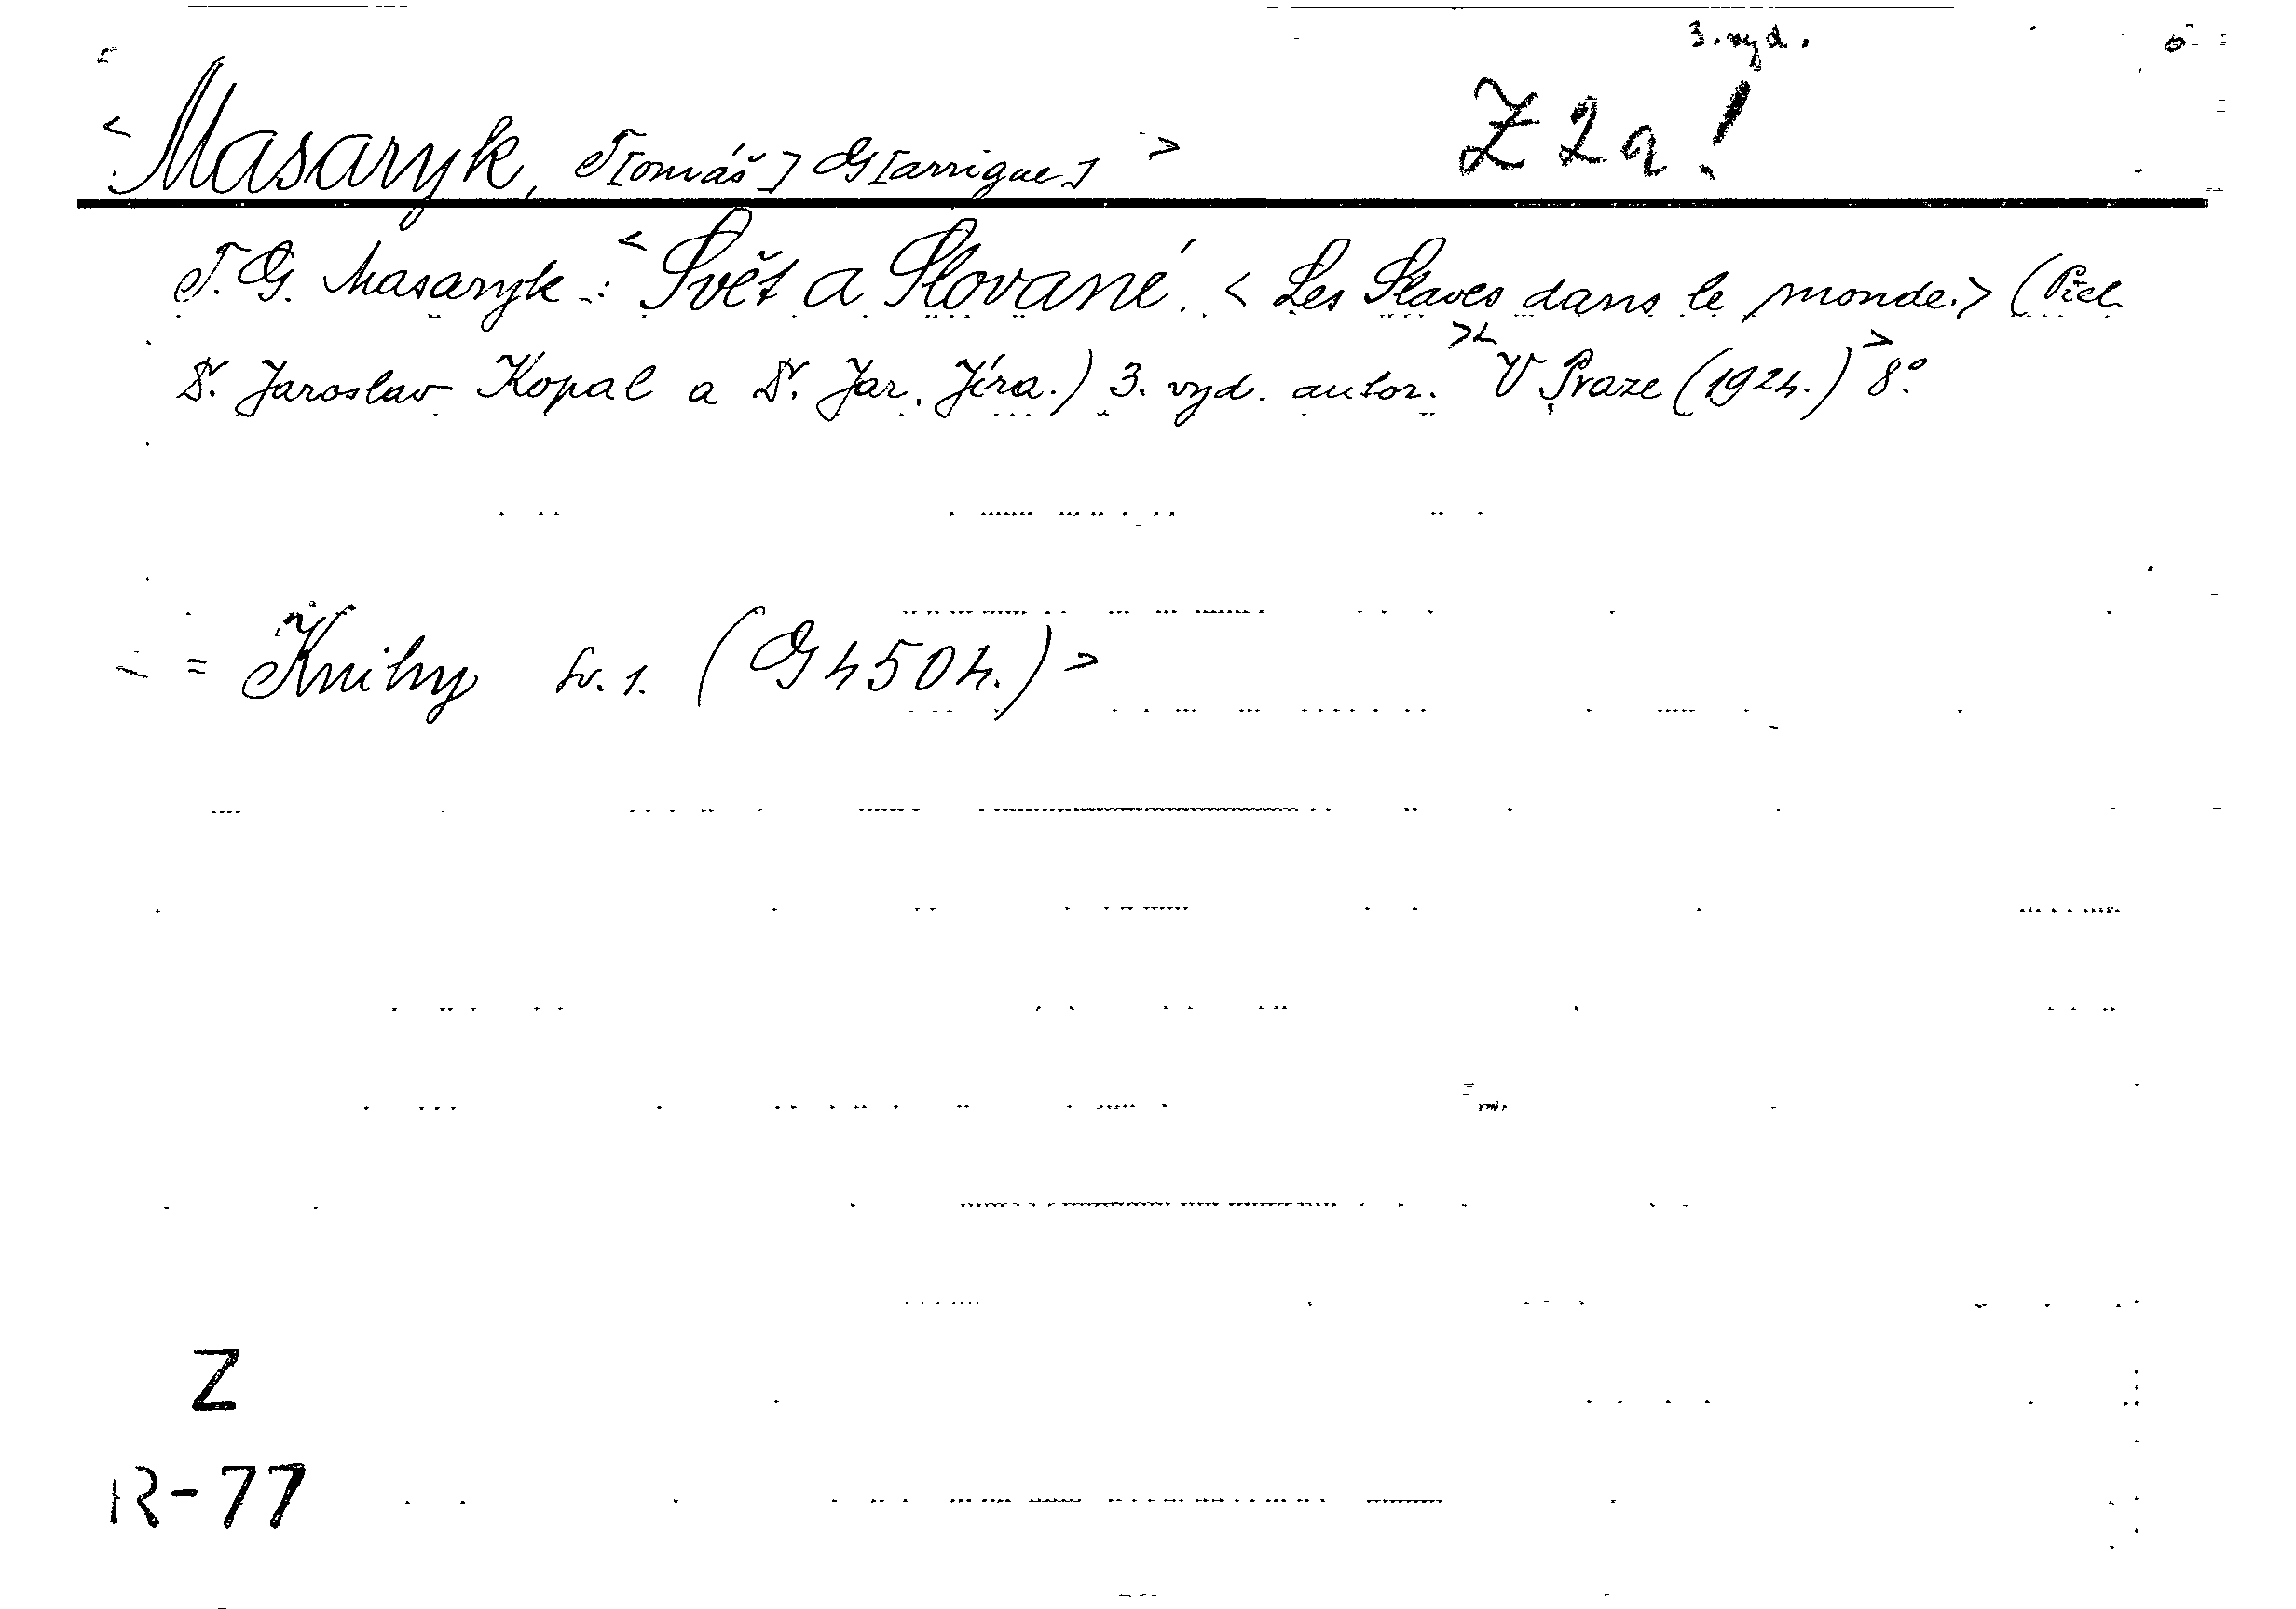 3. vyd.
<Masaryk, T[omáš] G[arrigue]> Z 2a!
T. G. Masaryk: <Svět a Slované. <Les Slaves dans le monde.> (Přel.
Dr. Jaroslav Kopal a Dr. Jar. Jíra.) 3. vyd. autor. >< V Praze (1924.)> 8°.
= Knihy Sv. 1. (G 4504.)>
Z
R-77